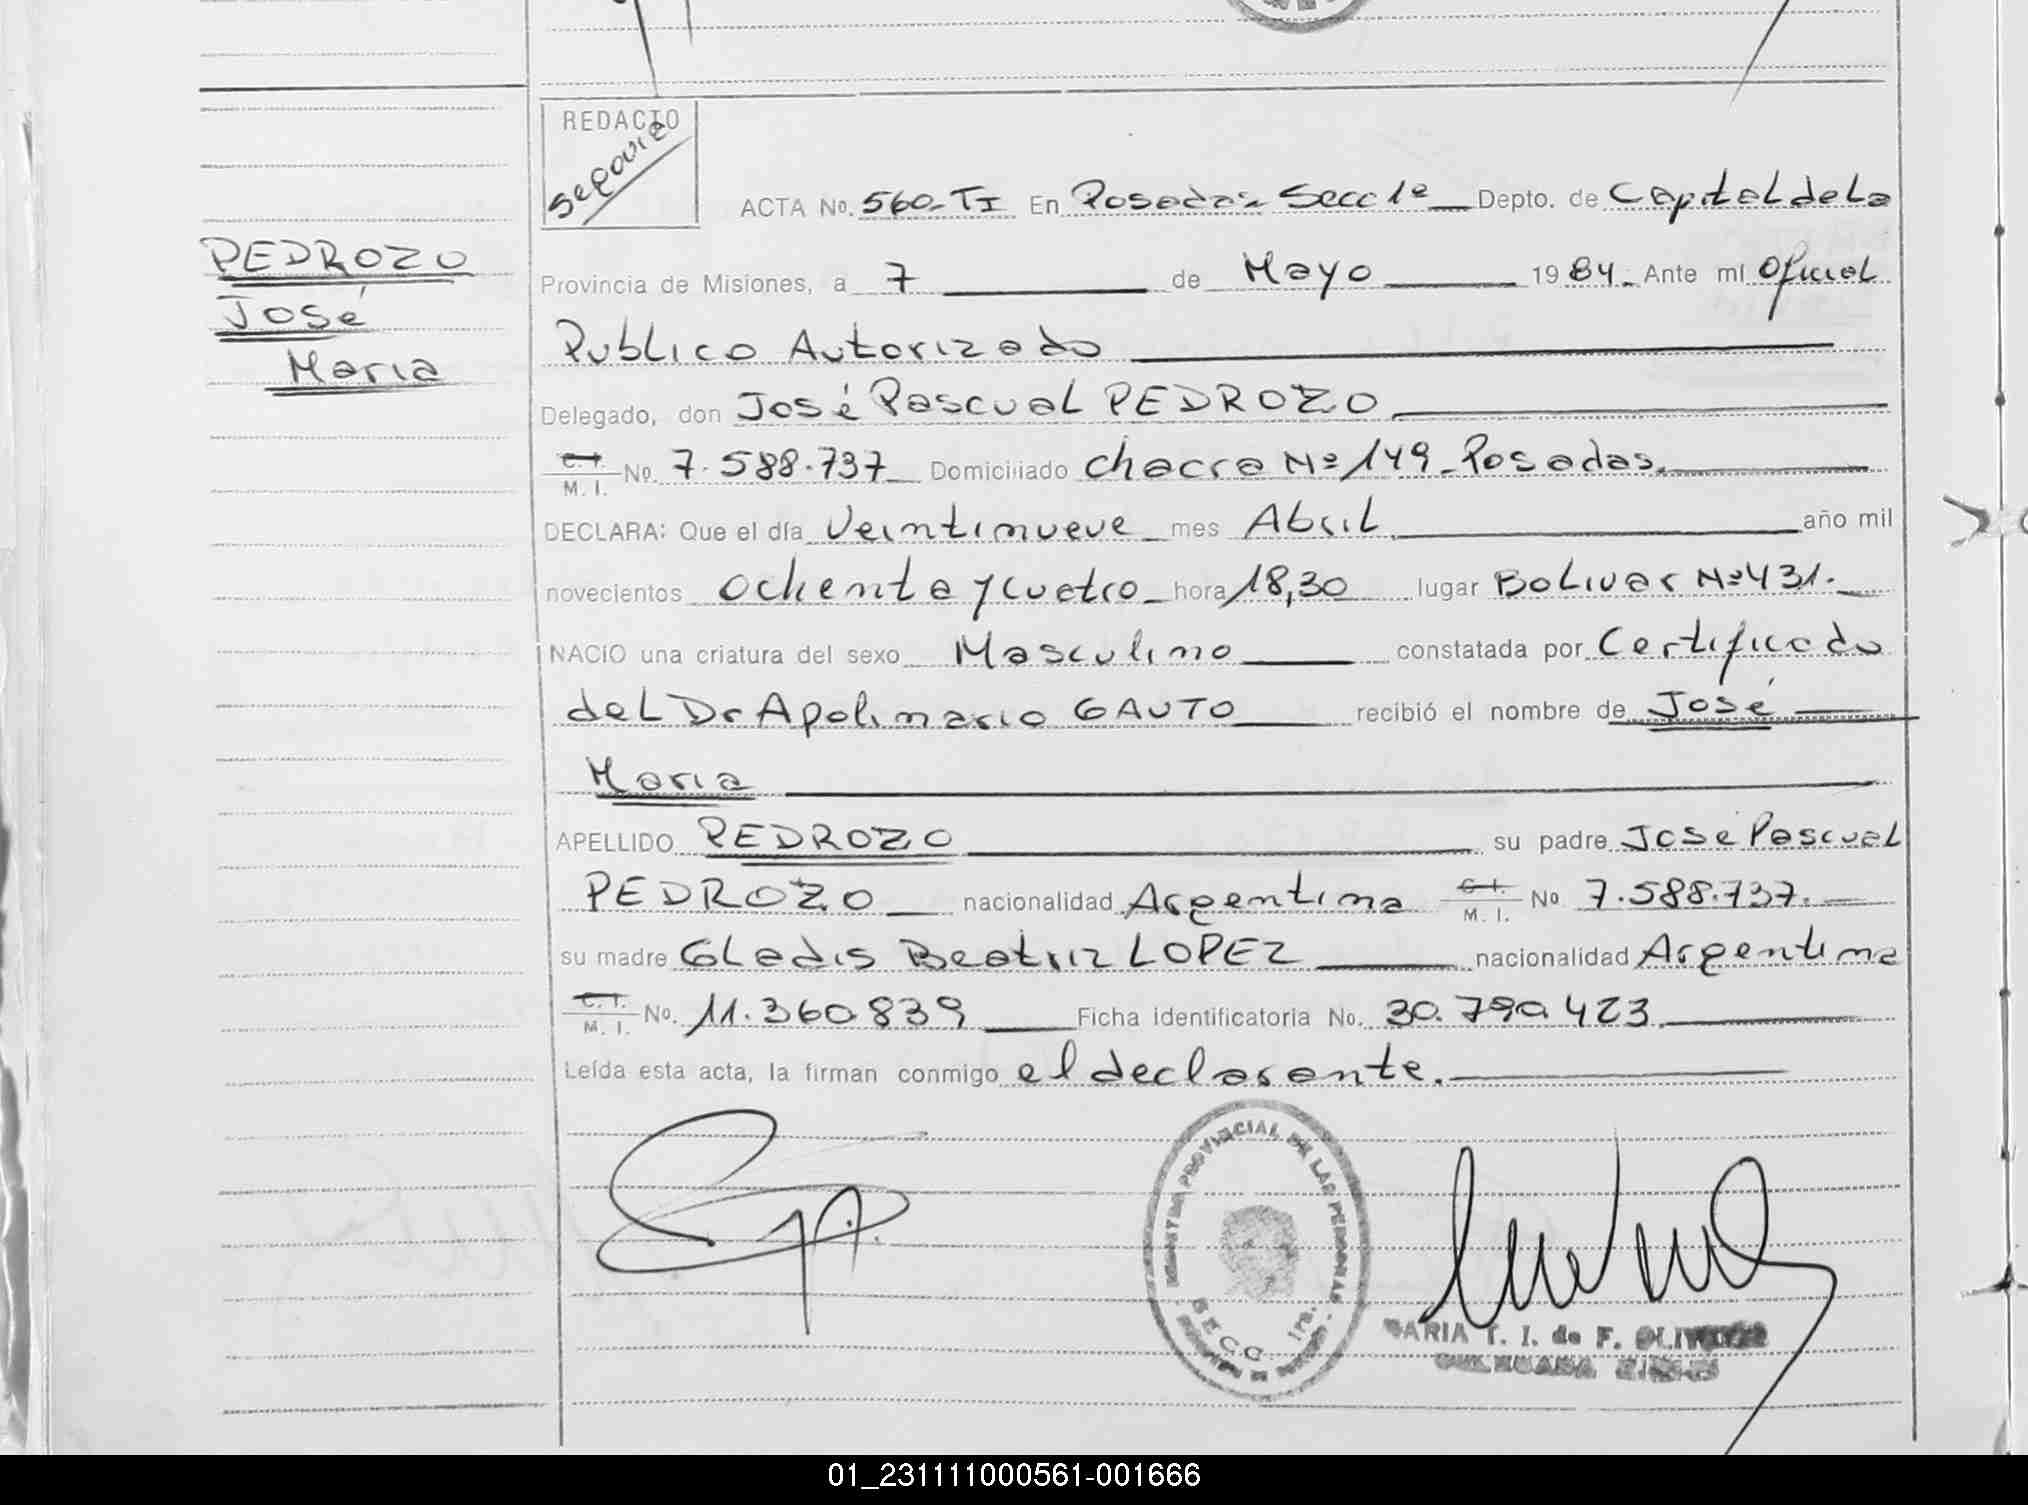 REDACTO
Segovia
ACTA No. 560-TI En Posadas Secc 1ª Depto. de Capital de La
PEDROZO
José
Maria
Provincia de Misiones, a 7 de Mayo 1984. Ante mí Oficial
Publico Autorizado
Delegado, don José Pascual PEDROZO
C. I.
M. I.
No. 7.588.737 Domiciliado Chacra Nº 149 Posadas.
DECLARA: Que el día Veintinueve mes Abril año mil
novecientos ochenta y cuatro hora 18,30 lugar Bolivar Nº 431.
NACIO una criatura del sexo Masculino constatada por Certificado
del Dr Apolinario GAUTO recibió el nombre de José
Maria
APELLIDO PEDROZO su padre José Pascual
PEDROZO nacionalidad Argentina C. I. M. I. No 7.588.737.
su madre Gladis Beatriz LOPEZ nacionalidad Argentina
C. I.
M. I.
No. 11.360.839 Ficha identificatoria No. 30.790.423
Leída esta acta, la firman conmigo el declarante.
PROVINCIAL DE LAS PERSONAS
SECC. 1ra.
MARIA T. I. de F.
01_231111000561-001666